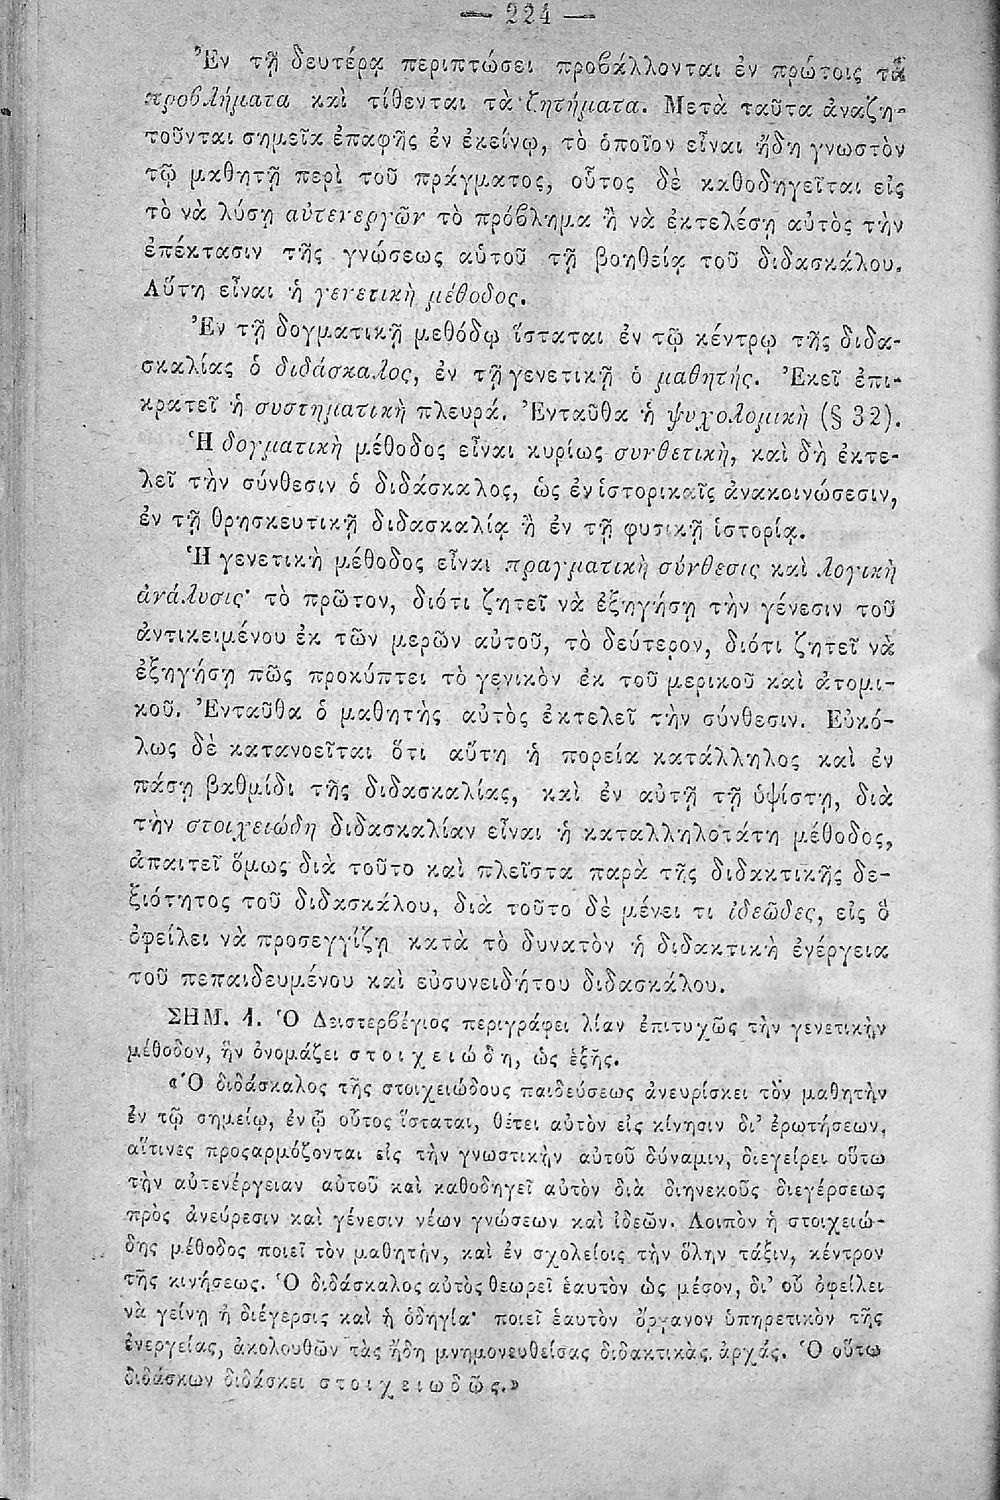 — 224 —
Ἐν τῇ δευτέρᾳ περιπτώσει προβάλλονται ἐν πρώτοις τὰ
προβλήματα καὶ τίθενται τὰ ζητήματα. Μετὰ ταῦτα ἀναζη-
τοῦνται σημεῖα ἐπαφῆς ἐν ἐκείνῳ, τὸ ὁποῖον εἶναι ἤδη γνωστὸν
τῷ μαθητῇ περὶ τοῦ πράγματος, οὗτος δὲ καθοδηγεῖται εἰς
τὸ νὰ λύσῃ αὐτενεργῶν τὸ πρόβλημα ἢ νὰ ἐκτελέσῃ αὐτὸς τὴν
ἐπέκτασιν τῆς γνώσεως αὑτοῦ τῇ βοηθείᾳ τοῦ διδασκάλου.
Αὕτη εἶναι ἡ γενετικὴ μέθοδος.
Ἐν τῇ δογματικῇ μεθόδῳ ἵσταται ἐν τῷ κέντρῳ τῆς διδα-
σκαλίας ὁ διδάσκαλος, ἐν τῇ γενετικῇ ὁ μαθητής. Ἐκεῖ ἐπι-
κρατεῖ ἡ συστηματικὴ πλευρά. Ἐνταῦθα ἡ ψυχολομικὴ (§ 32).
Ἡ δογματικὴ μέθοδος εἶναι κυρίως συνθετικὴ, καὶ δὴ ἐκτε-
λεῖ τὴν σύνθεσιν ὁ διδάσκαλος, ὡς ἐν ἱστορικαῖς ἀνακοινώσεσιν,
ἐν τῇ θρησκευτικῇ διδασκαλίᾳ ἢ ἐν τῇ φυσικῇ ἱστορίᾳ.
Ἡ γενετικὴ μέθοδος εἶναι πραγματικὴ σύνθεσις καὶ λογικὴ
ἀνάλυσις· τὸ πρῶτον, διότι ζητεῖ νὰ ἐξηγήσῃ τὴν γένεσιν τοῦ
ἀντικειμένου ἐκ τῶν μερῶν αὐτοῦ, τὸ δεύτερον, διότι ζητεῖ νὰ
ἐξηγήσῃ πῶς προκύπτει τὸ γενικὸν ἐκ τοῦ μερικοῦ καὶ ἀτομι-
κοῦ. Ἐνταῦθα ὁ μαθητὴς αὐτὸς ἐκτελεῖ τὴν σύνθεσιν. Εὐκό-
λως δὲ κατανοεῖται ὅτι αὕτη ἡ πορεία κατάλληλος καὶ ἐν
πάσῃ βαθμίδι τῆς διδασκαλίας, καὶ ἐν αὐτῇ τῇ ὑψίστῃ, διὰ
τὴν στοιχειώδη διδασκαλίαν εἶναι ἡ καταλληλοτάτη μέθοδος,
ἀπαιτεῖ ὅμως διὰ τοῦτο καὶ πλεῖστα παρὰ τῆς διδακτικῆς δε-
ξιότητος τοῦ διδασκάλου, διὰ τοῦτο δὲ μένει τι ἰδεῶδες, εἰς ὃ
ὀφείλει νὰ προσεγγίζῃ κατὰ τὸ δυνατὸν ἡ διδακτικὴ ἐνέργεια
τοῦ πεπαιδευμένου καὶ εὐσυνειδήτου διδασκάλου.
ΣΗΜ. 1. Ὁ Δειστερβέγιος περιγράφει λίαν ἐπιτυχῶς τὴν γενετικὴν
μέθοδον, ἣν ὀνομάζει στοιχειώδη, ὡς ἑξῆς.
«Ὁ διδάσκαλος τῆς στοιχειώδους παιδεύσεως ἀνευρίσκει τὸν μαθητὴν
ἐν τῷ σημείῳ, ἐν ᾧ οὗτος ἵσταται, θέτει αὐτὸν εἰς κίνησιν δι' ἐρωτήσεων,
αἵτινες προσαρμόζονται εἰς τὴν γνωστικὴν αὐτοῦ δύναμιν, διεγείρει οὕτω
τὴν αὐτενέργειαν αὐτοῦ καὶ καθοδηγεῖ αὐτὸν διὰ διηνεκοῦς διεγέρσεως
πρὸς ἀνεύρεσιν καὶ γένεσιν νέων γνώσεων καὶ ἰδεῶν. Λοιπὸν ἡ στοιχειώ-
δης μέθοδος ποιεῖ τὸν μαθητὴν, καὶ ἐν σχολείοις τὴν ὅλην τάξιν, κέντρον
τῆς κινήσεως. Ὁ διδάσκαλος αὐτὸς θεωρεῖ ἑαυτὸν ὡς μέσον, δι' οὗ ὀφείλει
νὰ γείνῃ ἡ διέγερσις καὶ ἡ ὁδηγία· ποιεῖ ἑαυτὸν ὄργανον ὑπηρετικὸν τῆς
ἐνεργείας, ἀκολουθῶν τὰς ἤδη μνημονευθείσας διδακτικὰς ἀρχάς. Ὁ οὕτω
διδάσκων διδάσκει στοιχειωδῶς.»